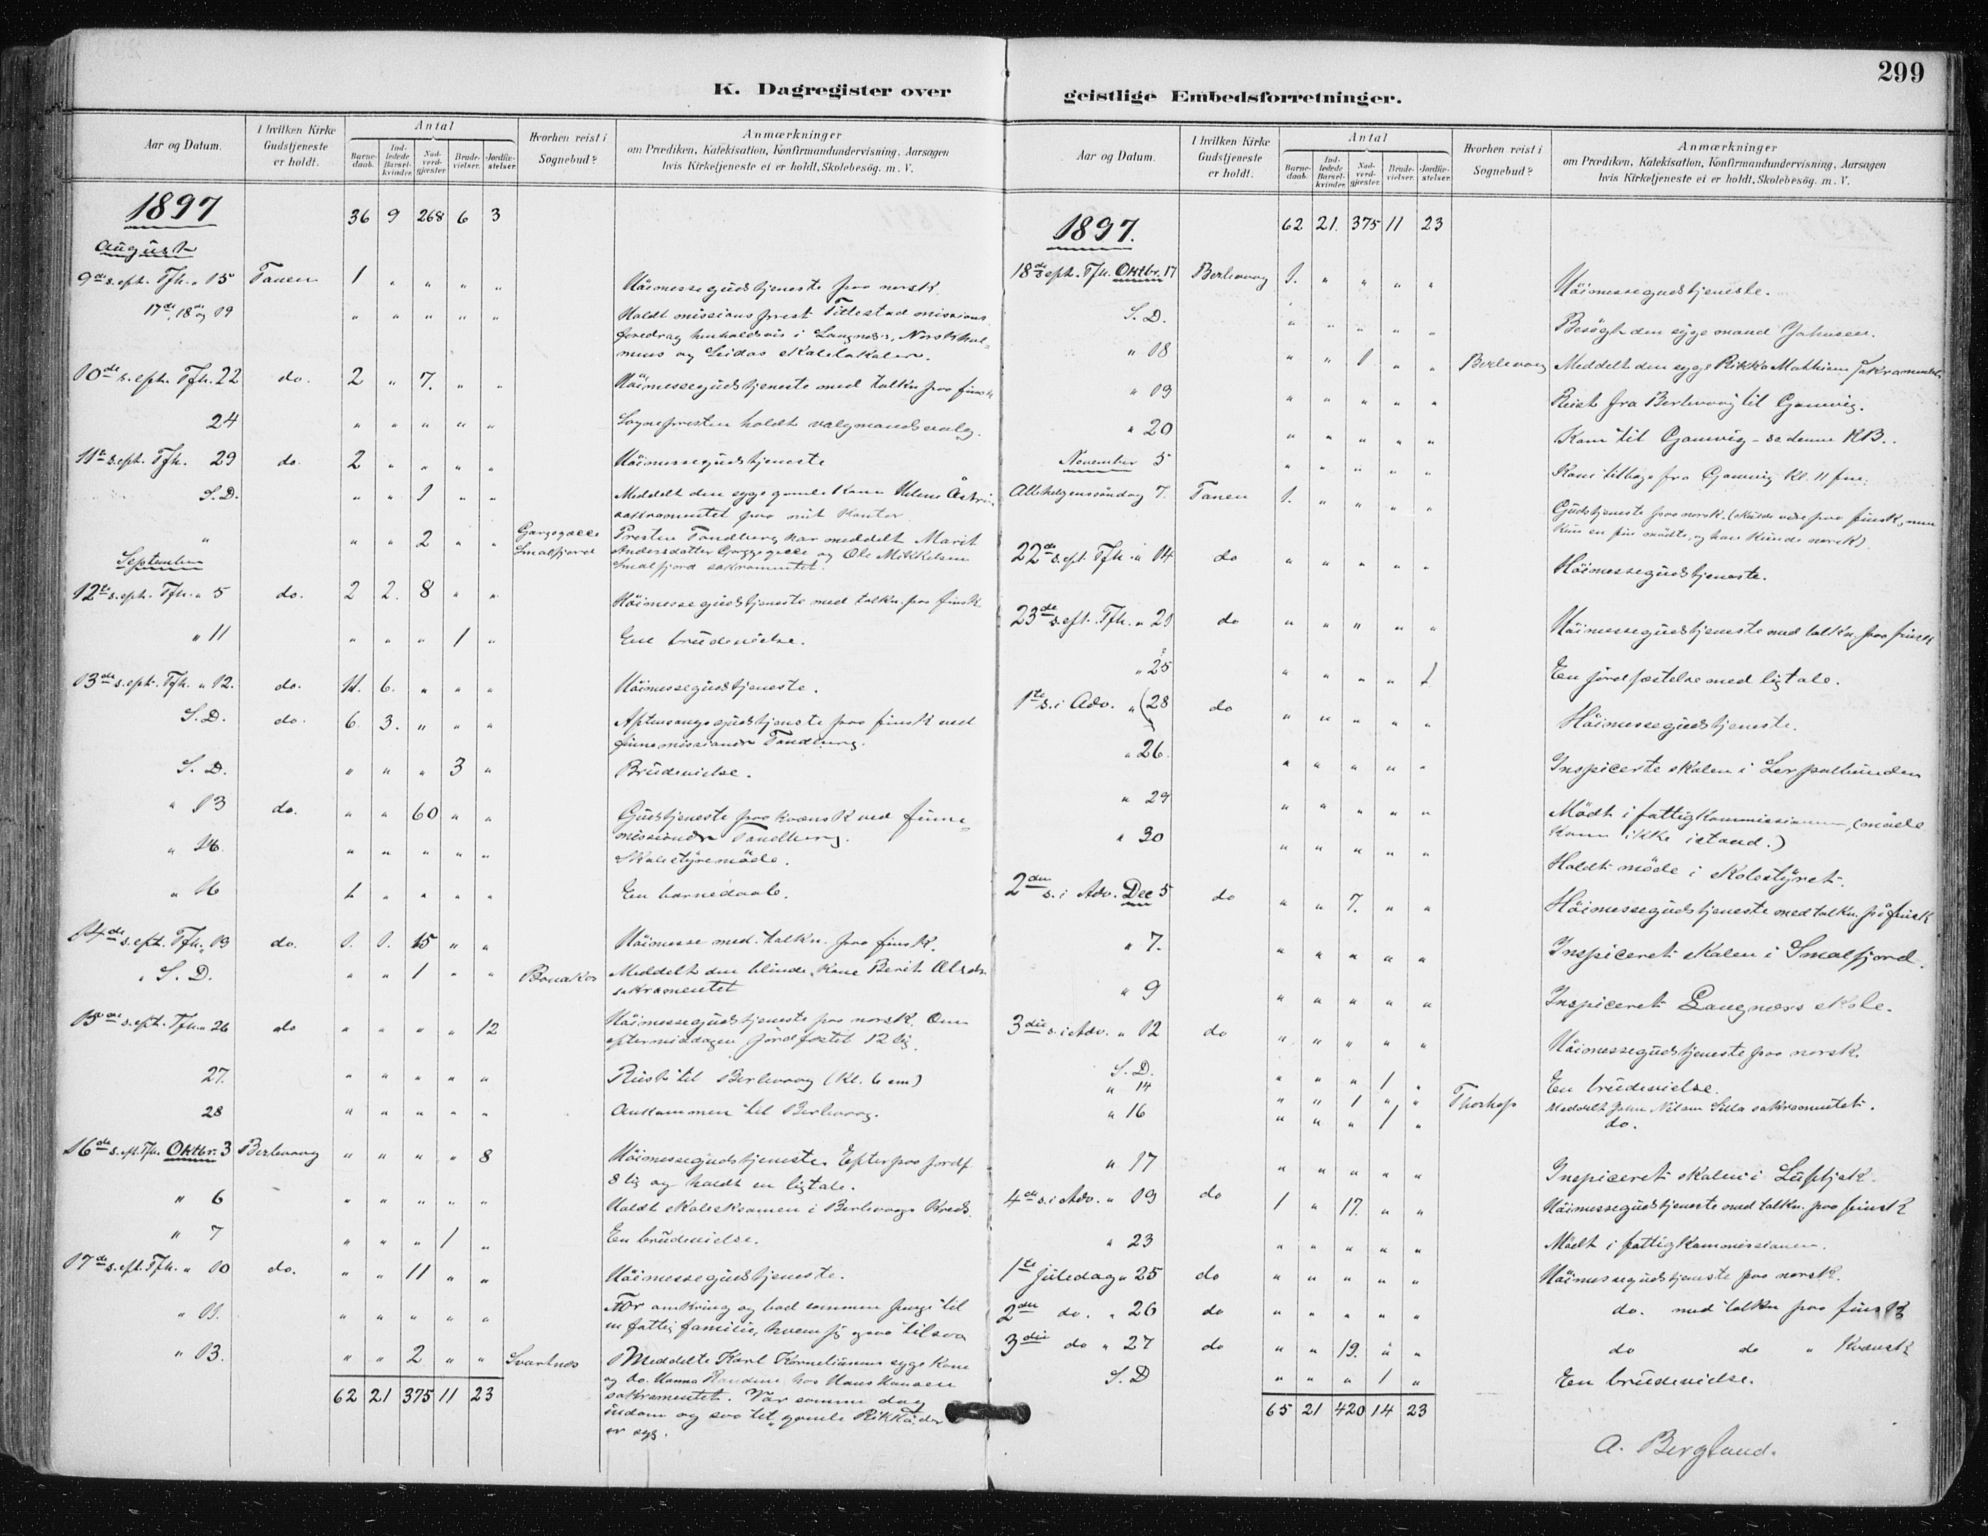 299
K. Dagregister over geistlige Embedsforretninger.
Aar og Datum. I hvilken Kirke Gudstjeneste er holdt. Antal Hvorhen reist i Sognebud? Anmærkninger
Barnedaab. Indledede Barselkvinder. Nadverdgjester. Brudevielser. Jordfæstelser.
om Prædiken, Katekisation, Konfirmandundervisning, Aarsagen
hvis Kirketjeneste ei er holdt, Skolebesøg. m. V.
1897 36 9 268 6 3
August
9de s. eft. Tfh. " 15 Tanen 1 " " " " Höimessegudstjeneste paa norsk
17de, 18de og 19 " " " " " Holdt missionsprest Tittestad missions
foredrag henholdsvis i Langnæs, Norskhol-
mens og Seidas skolelokaler.
10de s. eft. Tfh. 22 do. 2 " 7. " " Höimessegudstjeneste med tolkn. paa finsk
24 " " " " " Sognepresten holdt valgmandsvalg.
11te s. eft. Tfh. 29 do. 2 " " " " Höimessegudstjeneste
S. D. " " 1 " " Meddelt den syge gamle Kone Helene
sakramentet paa mit Kontor
" " " 2 " " Smalfjord Presten Tandberg har meddelt Marit
Andersdatter og Ole Mikkelsen
Smalfjord sakramentet.
September
12te s. eft. Tfh. " 5 do. 2 2. 8 " " Höimessegudstjeneste med tolkn. paa finsk
" 11 " " " 1 " En brudevielse.
13de s. eft. Tfh. " 12. do. 11. 6. " " " Höimessegudstjeneste.
S. D. do. 6. 3. " " " Aftensangsgudstjeneste paa finsk ved
finnemissionær Tandberg.
S. D. " " " 3 " Brudevielse.
" 13 do. " " 60 " " Gudstjeneste paa kvænsk ved finne-
missionær Tandberg.
" 14. " " " " " Skolestyremöde.
" 16 1 " " " " En barnedaab.
14de s. eft. Tfh. " 19 do. 1. 1. 15 " " Höimesse med tolkn. paa finsk.
" S. D. " " 1 " " Bonakas Meddelt den blinde Kone Berit Olsdr.
sakramentet
15de s. eft. Tfh. " 26 do " " " " 12 Höimessegudstjeneste paa norsk. Om
eftermiddagen jordfæstet 12 lig.
27. " " " " " Reist til Berlevaag (kl. 6 em)
28 " " " " " Ankommen til Berlevaag.
16de s. eft. Tfh. Oktbr. 3 Berlevaag " " " " 8 Höimessegudstjeneste. Efterpaa jordf.
8 lig og holdt en ligtale.
" 6 " " " " " Holdt skoleeksamen i Berlevaags Kreds.
" 7 " " " 1 " En brudevielse.
17de s. eft. Tfh. " 10 do. " " 11 " " Höimessegudstjeneste.
" 11. " " " " " For omkring og bad sammen penge til
en fattig familie, hvem jeg ogsaa tilsaa
" 13. " " 2 " " Svartnes Meddelte Karl Korneliusens syge Kone
og do. Hanna hos Hans Hansen
sakramentet. Var samme dag
indom og saa til gamle
er syg.
62 21 375 11 23
1897. 62 21. 375 11 23
18de s. eft. Tfh. Oktbr. 17 Berlevaag 1. " " " " Höimessegudstjeneste.
S. D. " " " " " Besögt den syge mand Johnsen.
" 18 " " 1 " " Berlevaag Meddelt den syge Rikka Mathisen sakramentet.
" 19 " " " " " Reist fra Berlevaag til Gamvig.
" 20 " " " " " Kom til Gamvig – se denne KB.
November 5 " " " " " Kom tilbage fra Gamvig Kl. 11 fm.
Allehelgenssöndag 7. Tanen 1. " " " " Gudstjeneste paa norsk. (Skulde være paa finsk, men
kun en fin mödte, og han kunde norsk).
22de s. eft. Tfh. " 14 do " " " " " Höimessegudstjeneste.
23de s. eft. Tfh. " 21 do " " " " " Höimessegudstjeneste med tolkn. paa finsk
" 25 " " " " 1 En jordfæstelse med ligtale.
1te s. i Adv. " 28 do " " " " " Höimessegudstjeneste.
" 26. " " " " " Inspicerte skolen i Lerpollbunden
" 29 " " " " " Mödt i fattigkommissionen (möde
kom ikke istand.)
" 30 " " " " " Holdt möde i Skolestyret.
2den s. i Adv. Dec 5 do " " 7. " " Höimessegudstjeneste med tolkn. på finsk
" 7. " " " " " Inspiceret skolen i Smalfjord.
" 9 " " " " " Inspiceret Langnæs skole.
3die s. i Adv. " 12 do " " " " " Höimessegudstjeneste paa norsk.
S. D. " " " 1 " En brudevielse.
" 14 " " 1 " " Thorhop Meddelt John Nilsen Silla sakramentet.
" 16 " " " 1 " do.
" 17 " " " " " Inspiceret skolen i Luftjok.
4de s. i Adv. " 19 do 1 " 17. " " Höimessegudstjeneste med tolkn. paa finsk
" 23 " " " " " Mödt i fattigkommissionen.
1te Juledag " 25 do " " " " " Höimessegudstjeneste paa norsk.
2den do. " 26 do " " " " " do. med tolkn paa finsk
3die do " 27 do " " 19. " " do do " Kvænsk
S. D " " " 1 " En brudevielse.
65 21 420 14 23
A. Bergland.